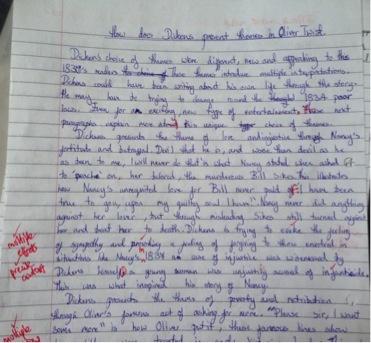 How does Dickens present themes in Oliver Twist.
Dickens's choice of themes were different, new and appealing to the
1838's readers These themes introduce multiple interpretations.
Dickens could have been writing about his own life through the story
He may be trying to change round the 1834 poor
laws. Even for an exciting new type of entertainment. These next
paragraphs explain more about this unique choice of themes.
Dickens presents the theme of love and injustice through Nancy's
fortitude and betrayal. Devil that he is, and worse than devil as he
as been to me, I will never do that is what Nancy stated when asked
to 'peach' on, her beloved, the murderous Bill Sikes this illustrates
how Nancy's unrequited love for Bill never paid off I have been
true to you, upon my guilty soul I have. Nancy never did anything
against her lover, but though misleading Sikes still turned against
her and beat her to death. Dickens is trying to evoke the feeling
of sympathy and a feeling of forgiving to those
situations like Nancy's 1834 case of injustice was witnessed by
Dickens himself a young woman was unjustly accused of
This was what inspired his story of Nancy.
Dickens presents the theme of poverty and retribution
through Oliver's famous act of asking for more. "Please sir, I want
some more" is how Oliver put it, these famous lines show
multiple
effects
context
multiple